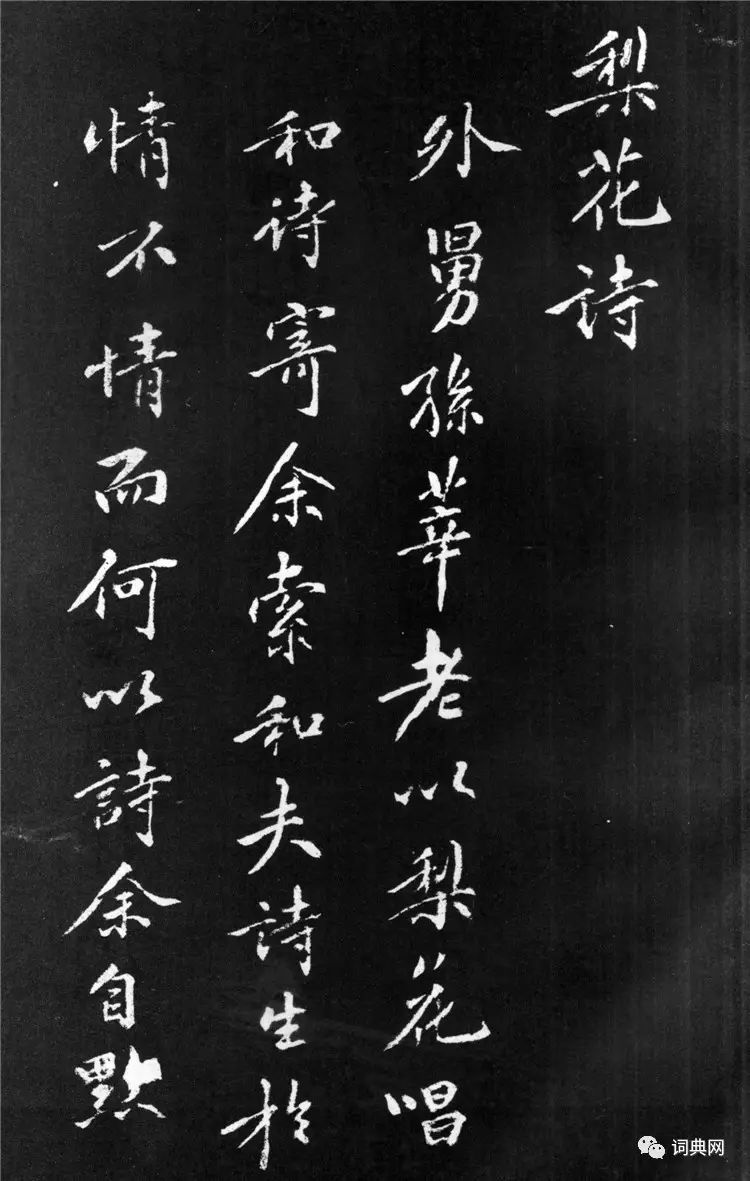 梨花詩
外舅孫莘老以梨花唱
和詩寄余索和夫詩生於
情不情而何以詩余自點
词典网